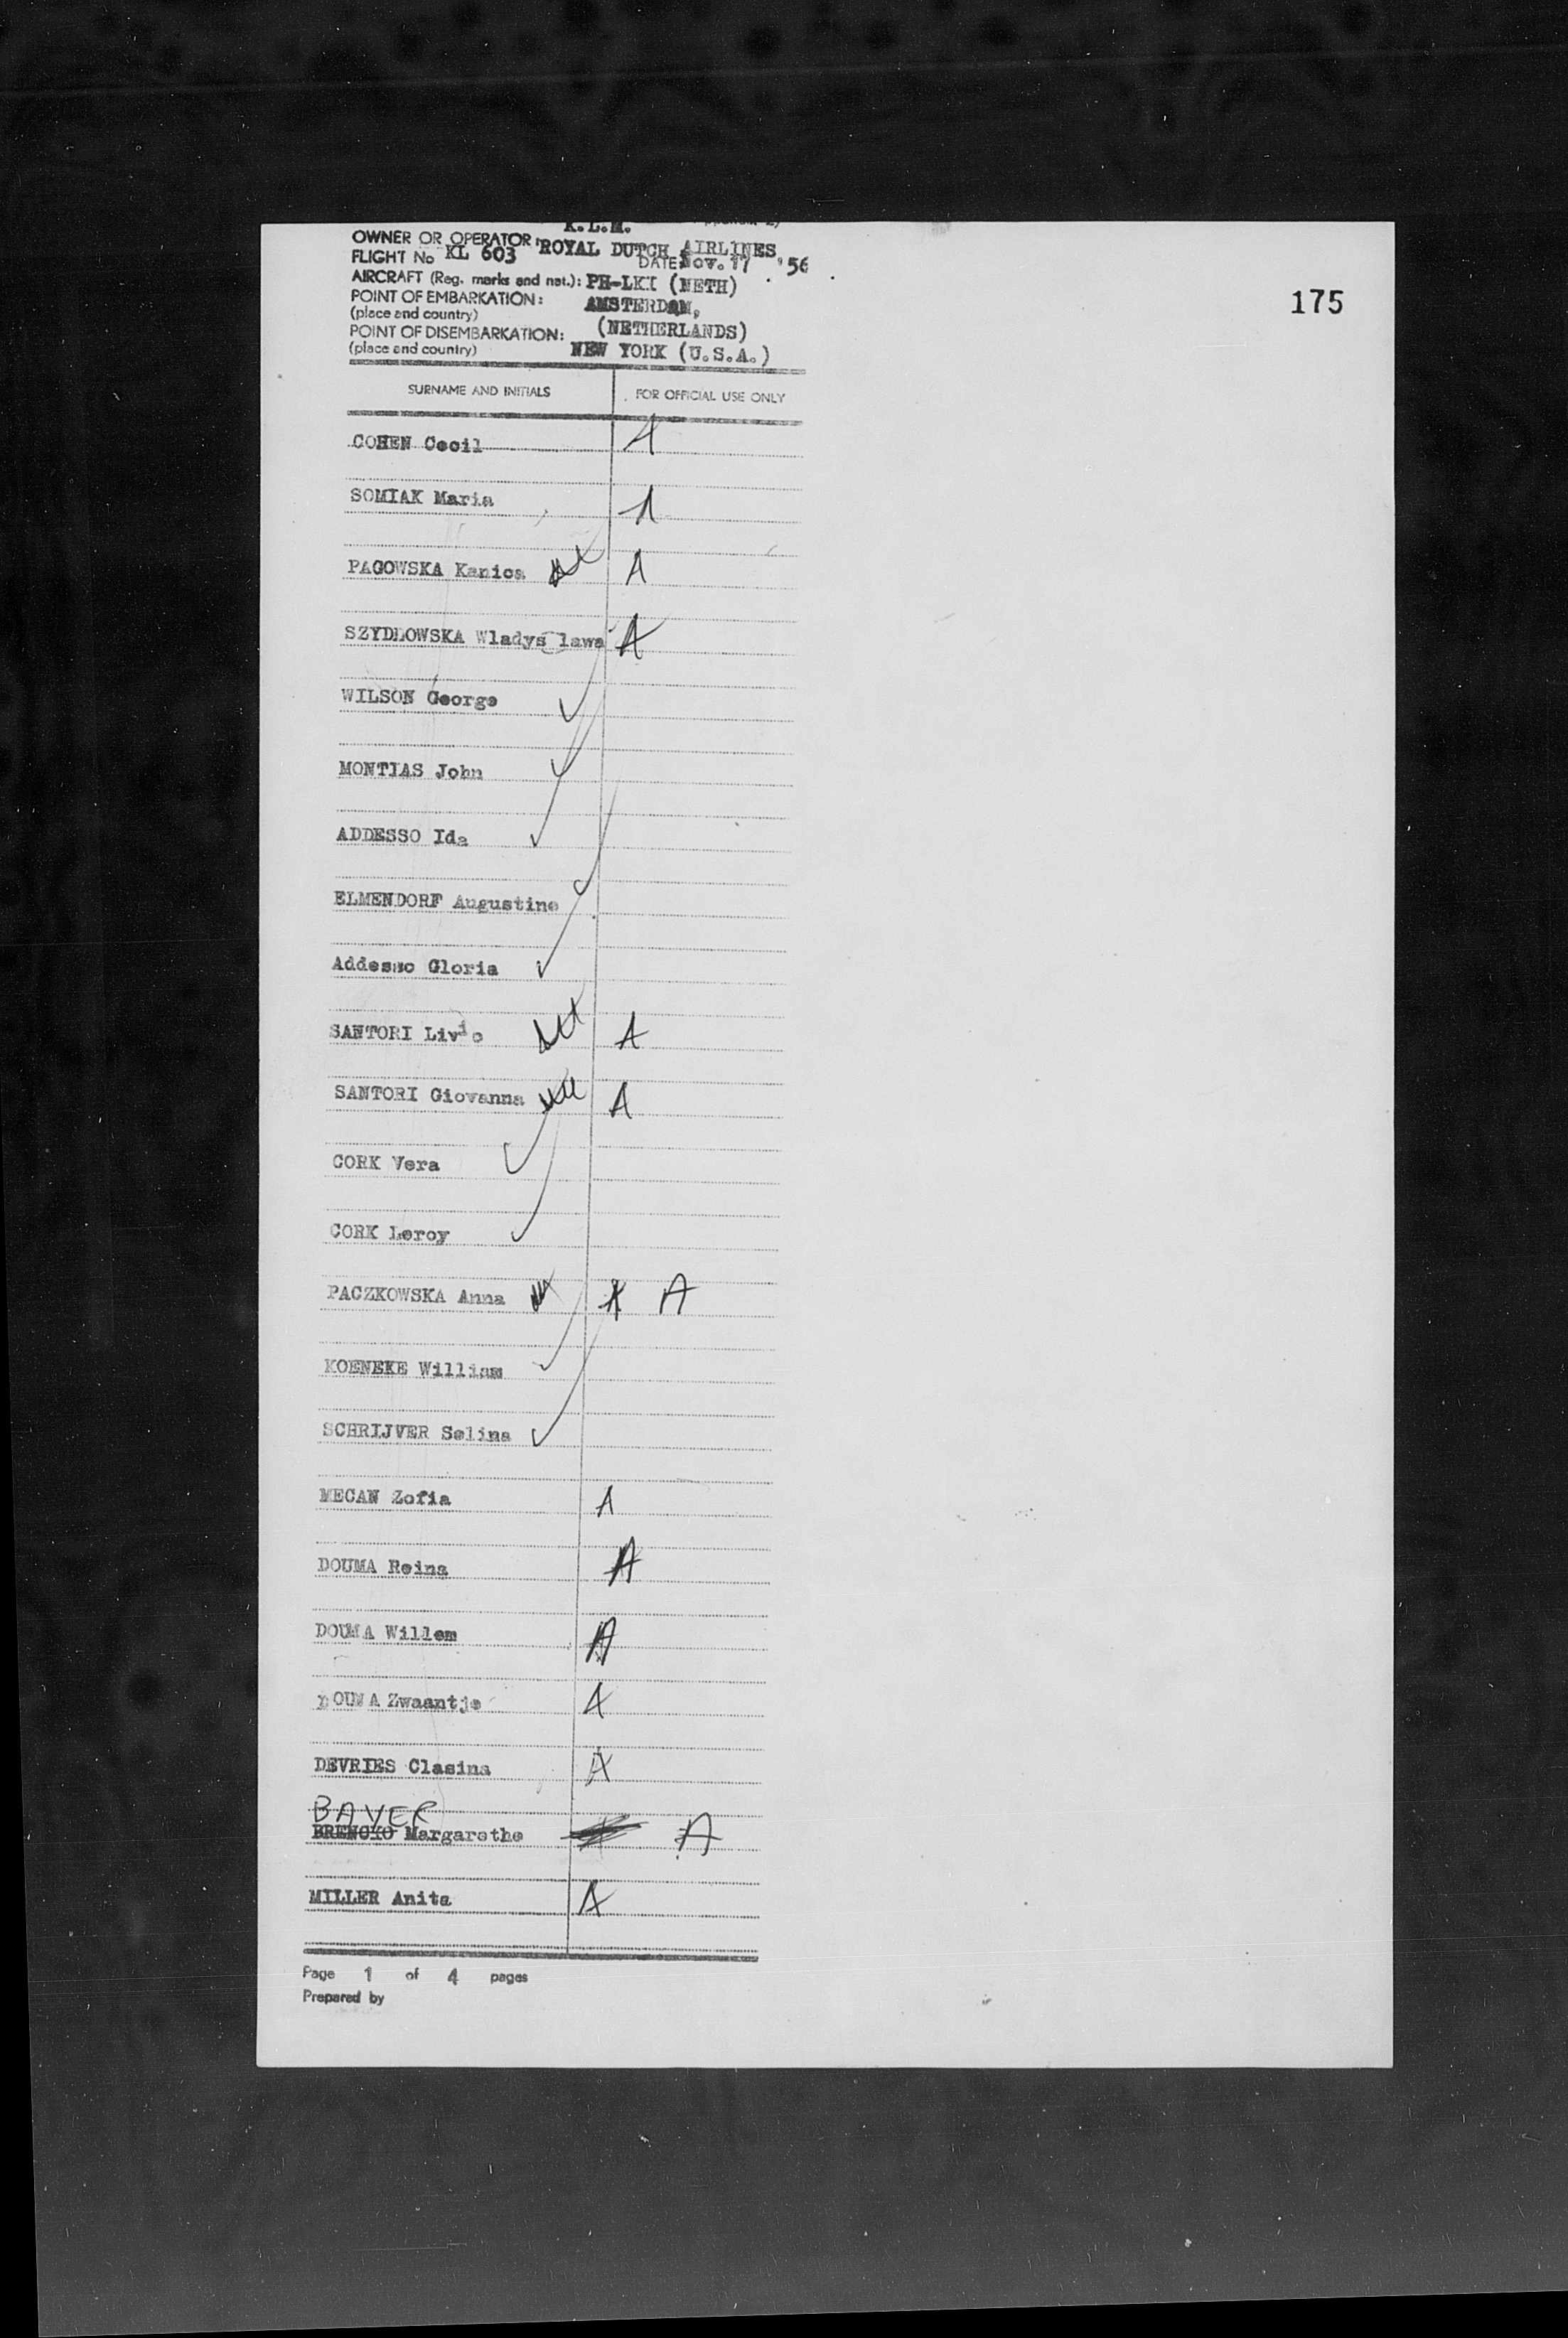 K.L.M.
OWNER OR OPERATOR: ROYAL DUTCH AIRLINES
FLIGHT No KL 603 DATE: Nov. 17 '56
AIRCRAFT (Reg. marks and nat.): PH-LKI (NETH)
POINT OF EMBARKATION: AMSTERDAM,
(place and country) (NETHERLANDS)
POINT OF DISEMBARKATION:
(place and country) NEW YORK (U.S.A.)
175
SURNAME AND INITIALS FOR OFFICIAL USE ONLY
COHEN Cecil A
SOMIAK Maria A
PAGOWSKA Kanica A
SZYDLOWSKA Wladys lawa A
WILSON George
MONTIAS John
ADDESSO Ida
ELMENDORF Augustine
Addesso Gloria
SANTORI Livio A
SANTORI Giovanna A
CORK Vera
CORK Leroy
PACZKOWSKA Anna A
KOENEKE William
SCHRIJVER Selina
MECAN Zofia A
DOUMA Reina A
DOUMA Willem A
DOUMA Zwaantje A
DEVRIES Clasina A
BAYER
Margarethe A
MILLER Anita A
Page 1 of 4 pages
Prepared by